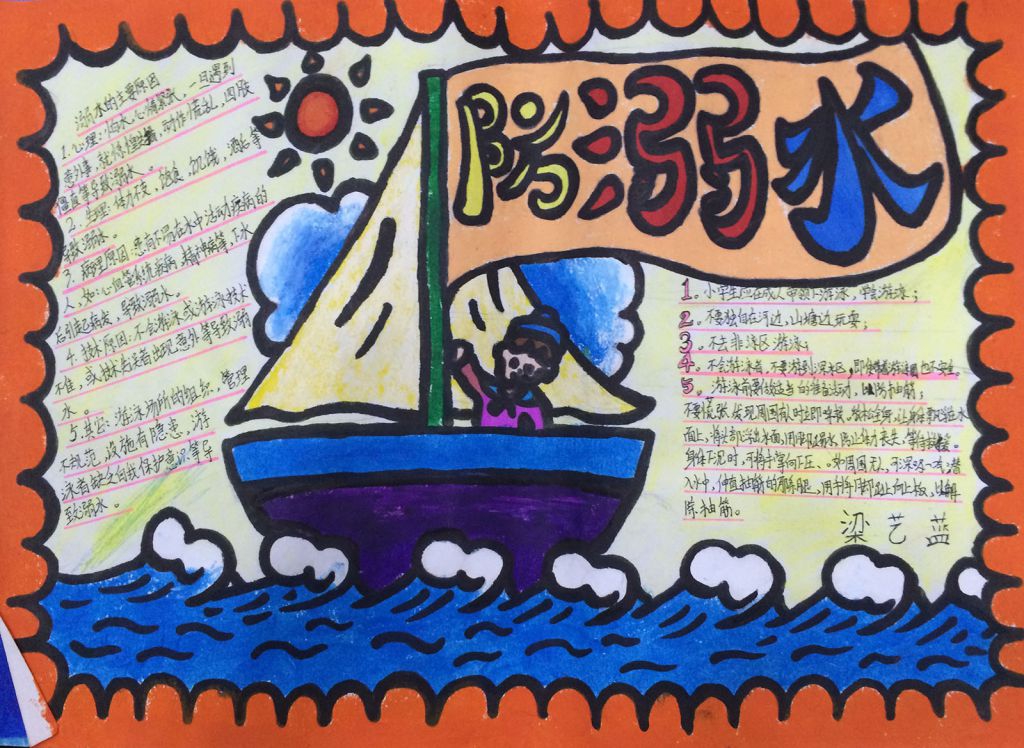 防溺水
溺水的主要原因
1.心理:怕水心情紧张,一旦遇到
意外事,就惊慌,动作慌乱,四肢
僵直等导致溺水。
2.生理:体力不支,饱食,饥饿,酒后等
导致溺水。
3.病理原因:患有不宜在水中活动疾病的
人,如心血管系统疾病,精神病等,下水
后引起病发,导致溺水。
4.技术原因:不会游泳或游泳技术
不佳,或技术失误者出现意外等导致溺
水。
5.其它:游泳场所的组织,管理
不规范,设施有隐患,游
泳者缺乏自我保护意识等导
致溺水。
1。小学生应在成人带领下游泳,学会游泳;
2。不要独自在河边,山塘边玩耍;
3。不去非泳区游泳;
4。不会游泳者,不要游到深水区,即使带着救生圈也不安全。
5。游泳前要做适当的准备活动,以防抽筋。
不要慌张,发现周围有人时立即呼救,放松全身,让身体飘浮在水
面上,将头部浮出水面,用脚踢水,防止体力丧失,等待救援。
身体下沉时,可将手掌向下压、。如周围无人,可深吸一口气潜
入水中,伸直抽筋的那条腿,用手将脚趾向上扳,以解
除抽筋。
梁艺蓝